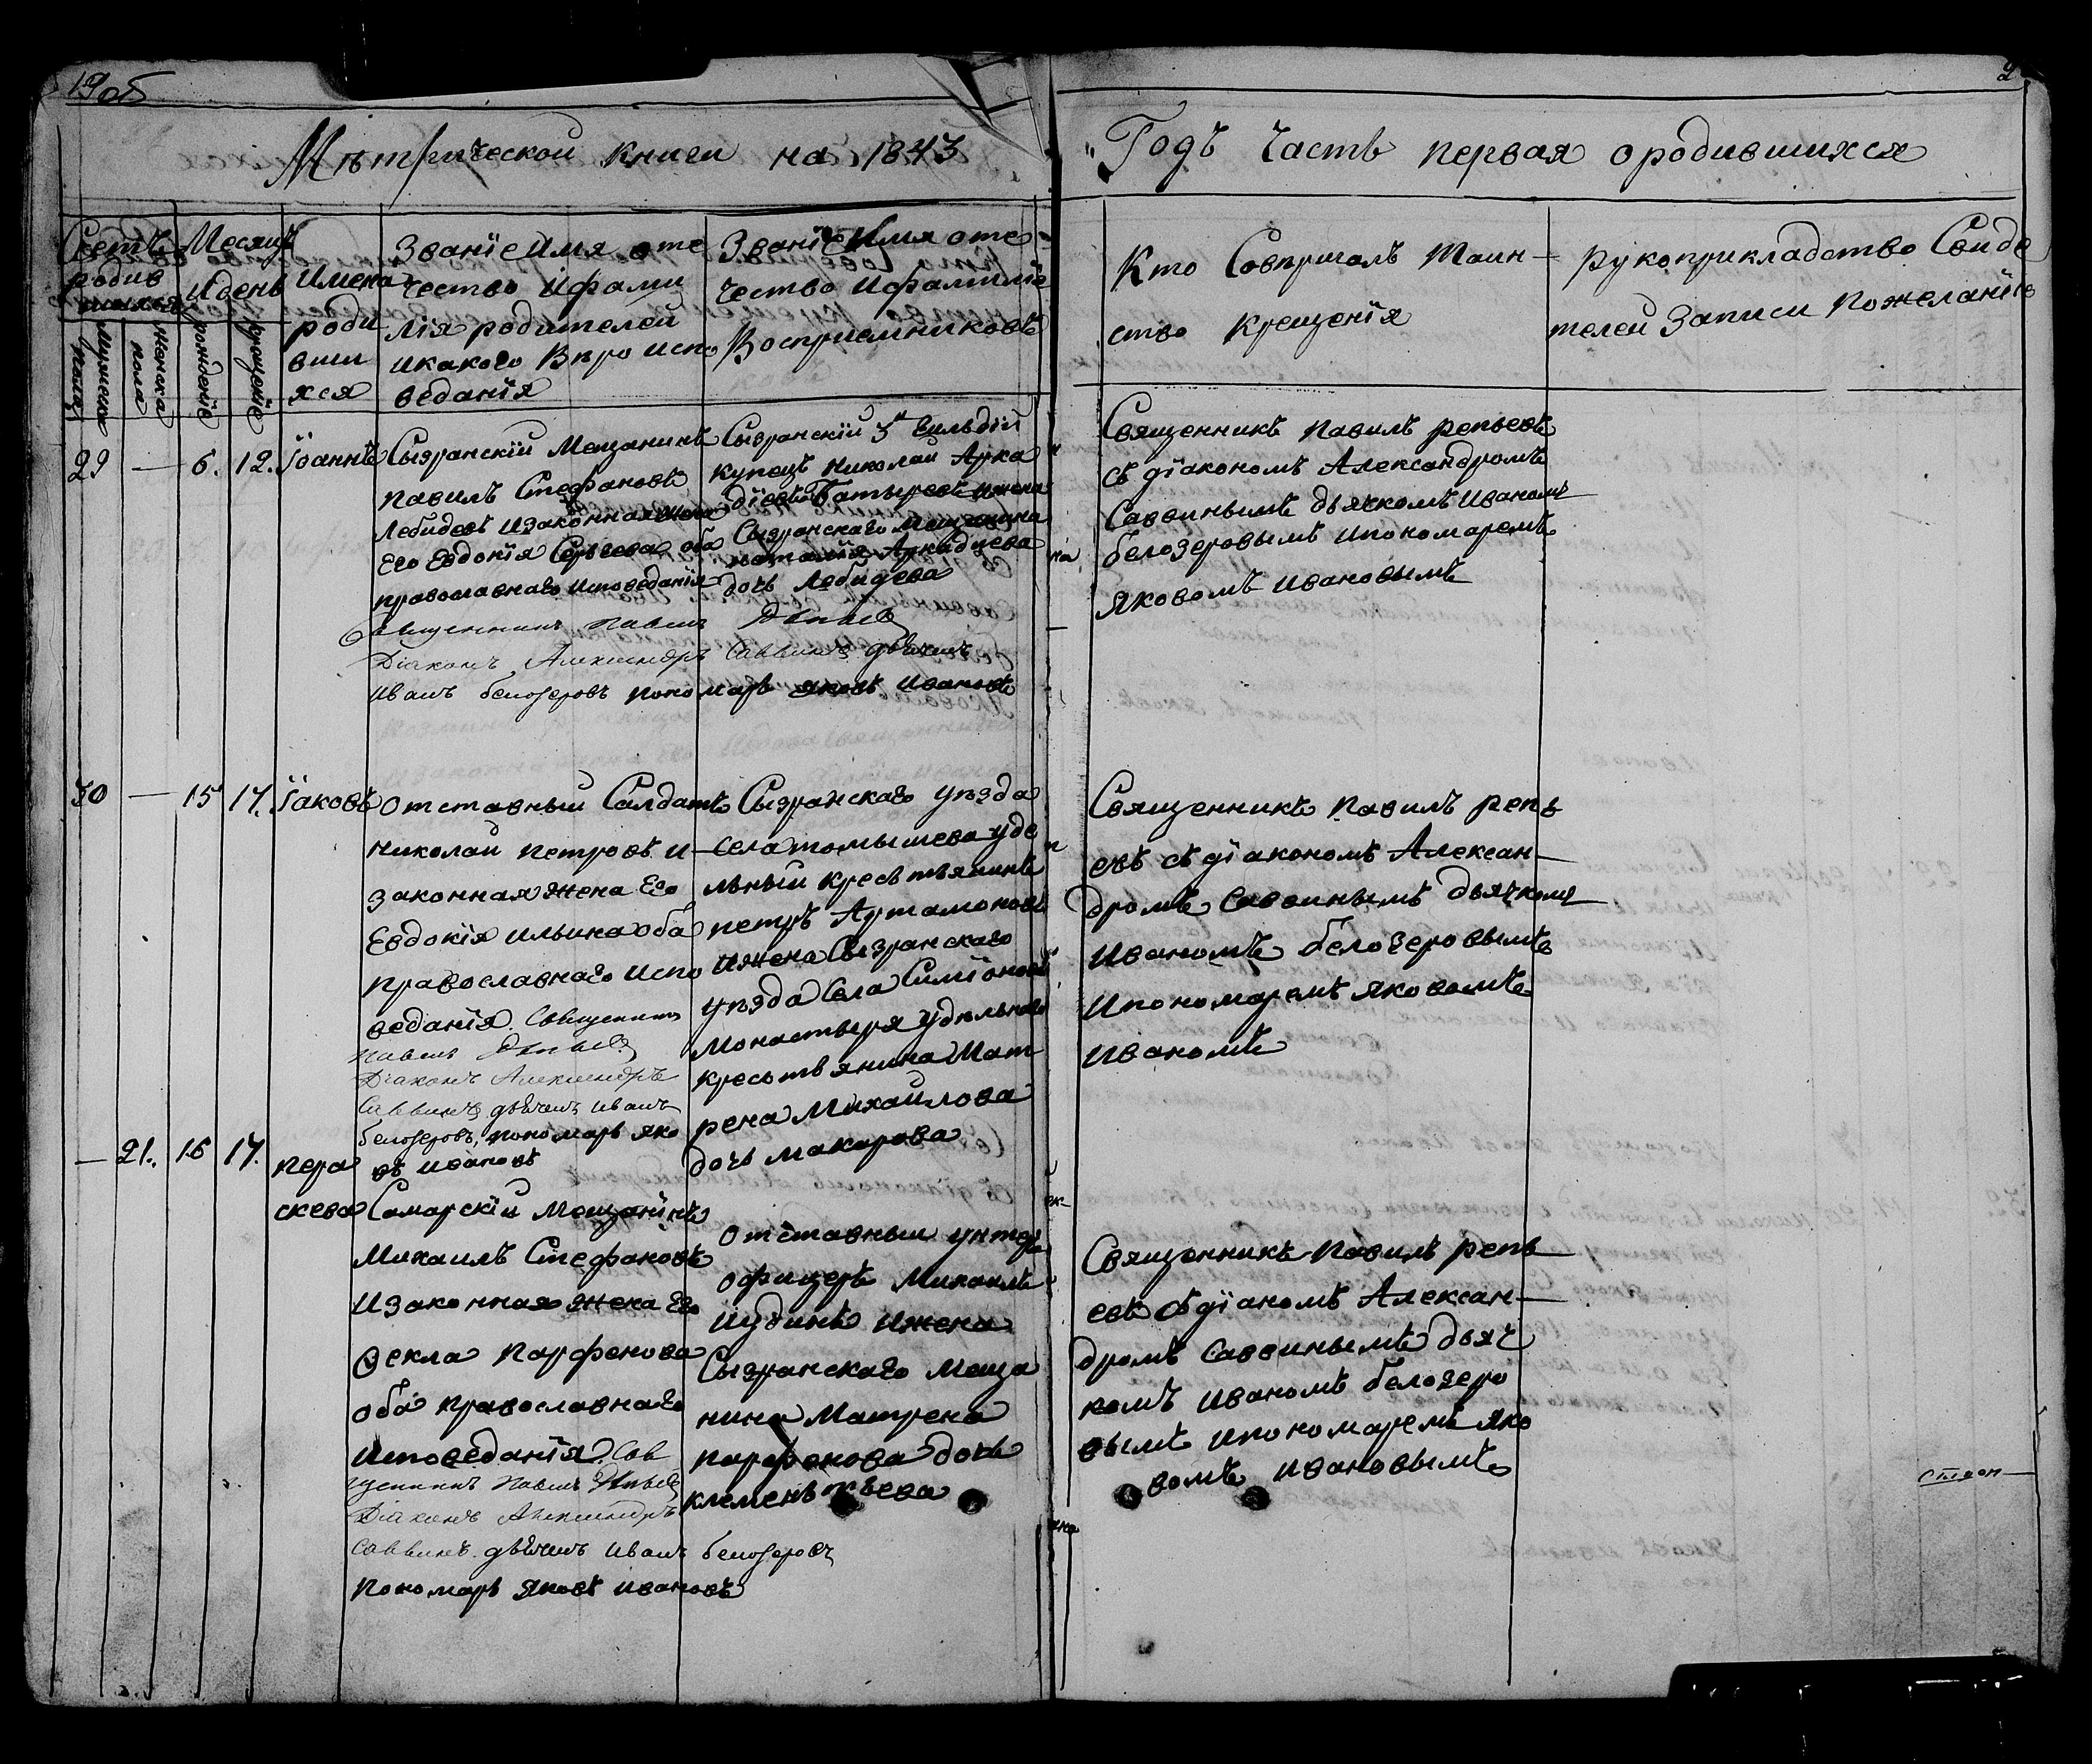 19об
Мѣтрической книги на 1843
Годъ Часть первая ородившихся
Счетъ
родив
шихся
Мужеска
пола
Женска
пола
Месяцъ
И день
рожденïе
крещенïе
Имена
роди
вши
хся
Званïе имя оте
чество Ифами
лïя родителей
икакого Вѣро испо
веданïя
Званïе Имя оте
чество Ифамилïе
Восприемниковъ
Кто Совершалъ Таин-
ство Крещенïя
рукоприкладство Свиде
телей Записи Пожеланïю
29 — 6. 12. Ïоаннъ
Сызранскïй Мещанинъ
павилъ Стефановъ
Лебидевъ Изаконная жена
Его Евдокïя Сергеева оба
православнаго исповеданïя
Священникъ Павелъ Репьев
Дïаконъ Александръ Саввинъ дьячекъ
Иванъ белозеровъ пономарь яковъ ивановъ
Сызранскïй 3й Гильдïи
купецъ Николай Арка
дïевъ Батыревъ ижена
Сызранскаго Мещанина
наталïя Аркадиева
дочь Лебидева
Священникъ павилъ репьевъ
съ дïакономъ Александромъ
Саввинымъ дьячкомъ Иваномъ
белозеровымъ ипономаремъ
яковомъ ивановымъ
30 — 15 17. Ïаковъ
отставный Салдатъ
николай петровъ и
законная жена Его
Евдокïя ильина оба
православнаго испо
веданïя. Священникъ
Павелъ Репьев
Дïаконъ Александръ
Саввинъ дьячекъ Иванъ
белозеровъ, пономарь яко
въ ивановъ
Сызранскаго уѣзда
села томышева уде
льный кресьтьянинъ
петръ Артамоновъ
ижена Сызранскаго
уѣзда Села Симïонова
Монастыря удѣльнаго
кресьтьянина Мат
рена Михаилова
дочь макарова
Священникъ павилъ репь
евъ съ дïакономъ Алексан-
дромъ Саввинымъ дьячкомъ
Иваномъ белозеровымъ
Ипономаремъ яковомъ
Иваномъ
— 21. 16 17. пара
скева
Самарскïй Мещанинъ
Михаилъ Стефановъ
Изаконная жена Его
Ѳекла Парфенова
оба православнаго
Исповеданïя. Свя
щенникъ Павелъ Репьев
Дïаконъ Александръ
Саввинъ. дьячекъ Иванъ белозеровъ
Пономарь яковъ ивановъ
отставный унтер
офицеръ Михаилъ
Иудинъ Ижена
Сызранскаго Меща
нина Матрена
парфенова дочь
клементьева
Священникъ Павилъ репь
евъ съ дïаномъ Алексан-
дромъ Саввинымъ дьяч
комъ иваномъ белозеро
вымъ ипономаремъ яко
вомъ ивановымъ